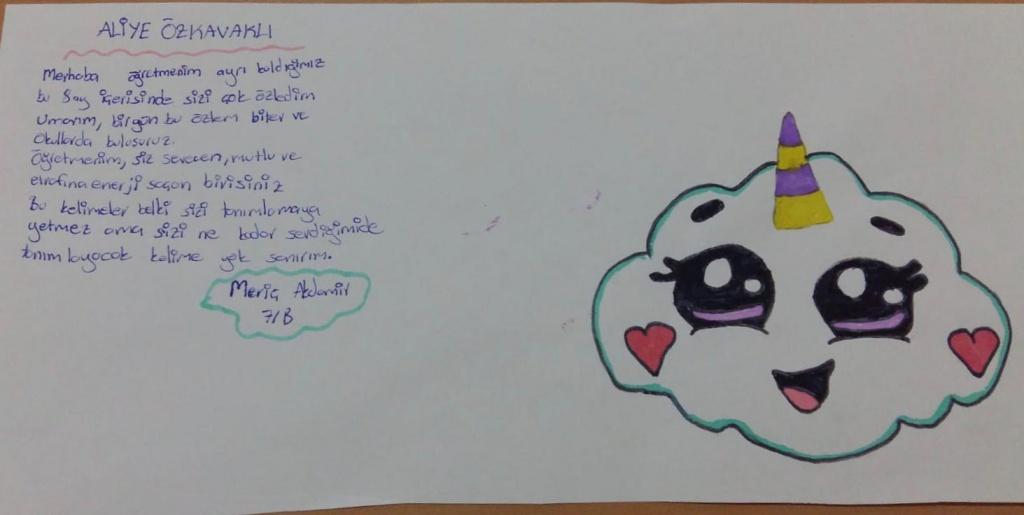 ALİYE ÖZKAVAKLI
Merhaba öğretmenim ayrı kaldığımız
bu 8 ay içerisinde sizi çok özledim
umarım, birgün bu özlem biter ve
okullarda buluşuruz.
Öğretmenim, siz sevecen, mutlu ve
etrafına enerji saçan birisiniz
Bu kelimeler belki sizi tanımlamaya
yetmez ama sizi ne kadar sevdiğimide
tanımlayacak kelime yok sanırım.
Meriç Akdemir
7/B